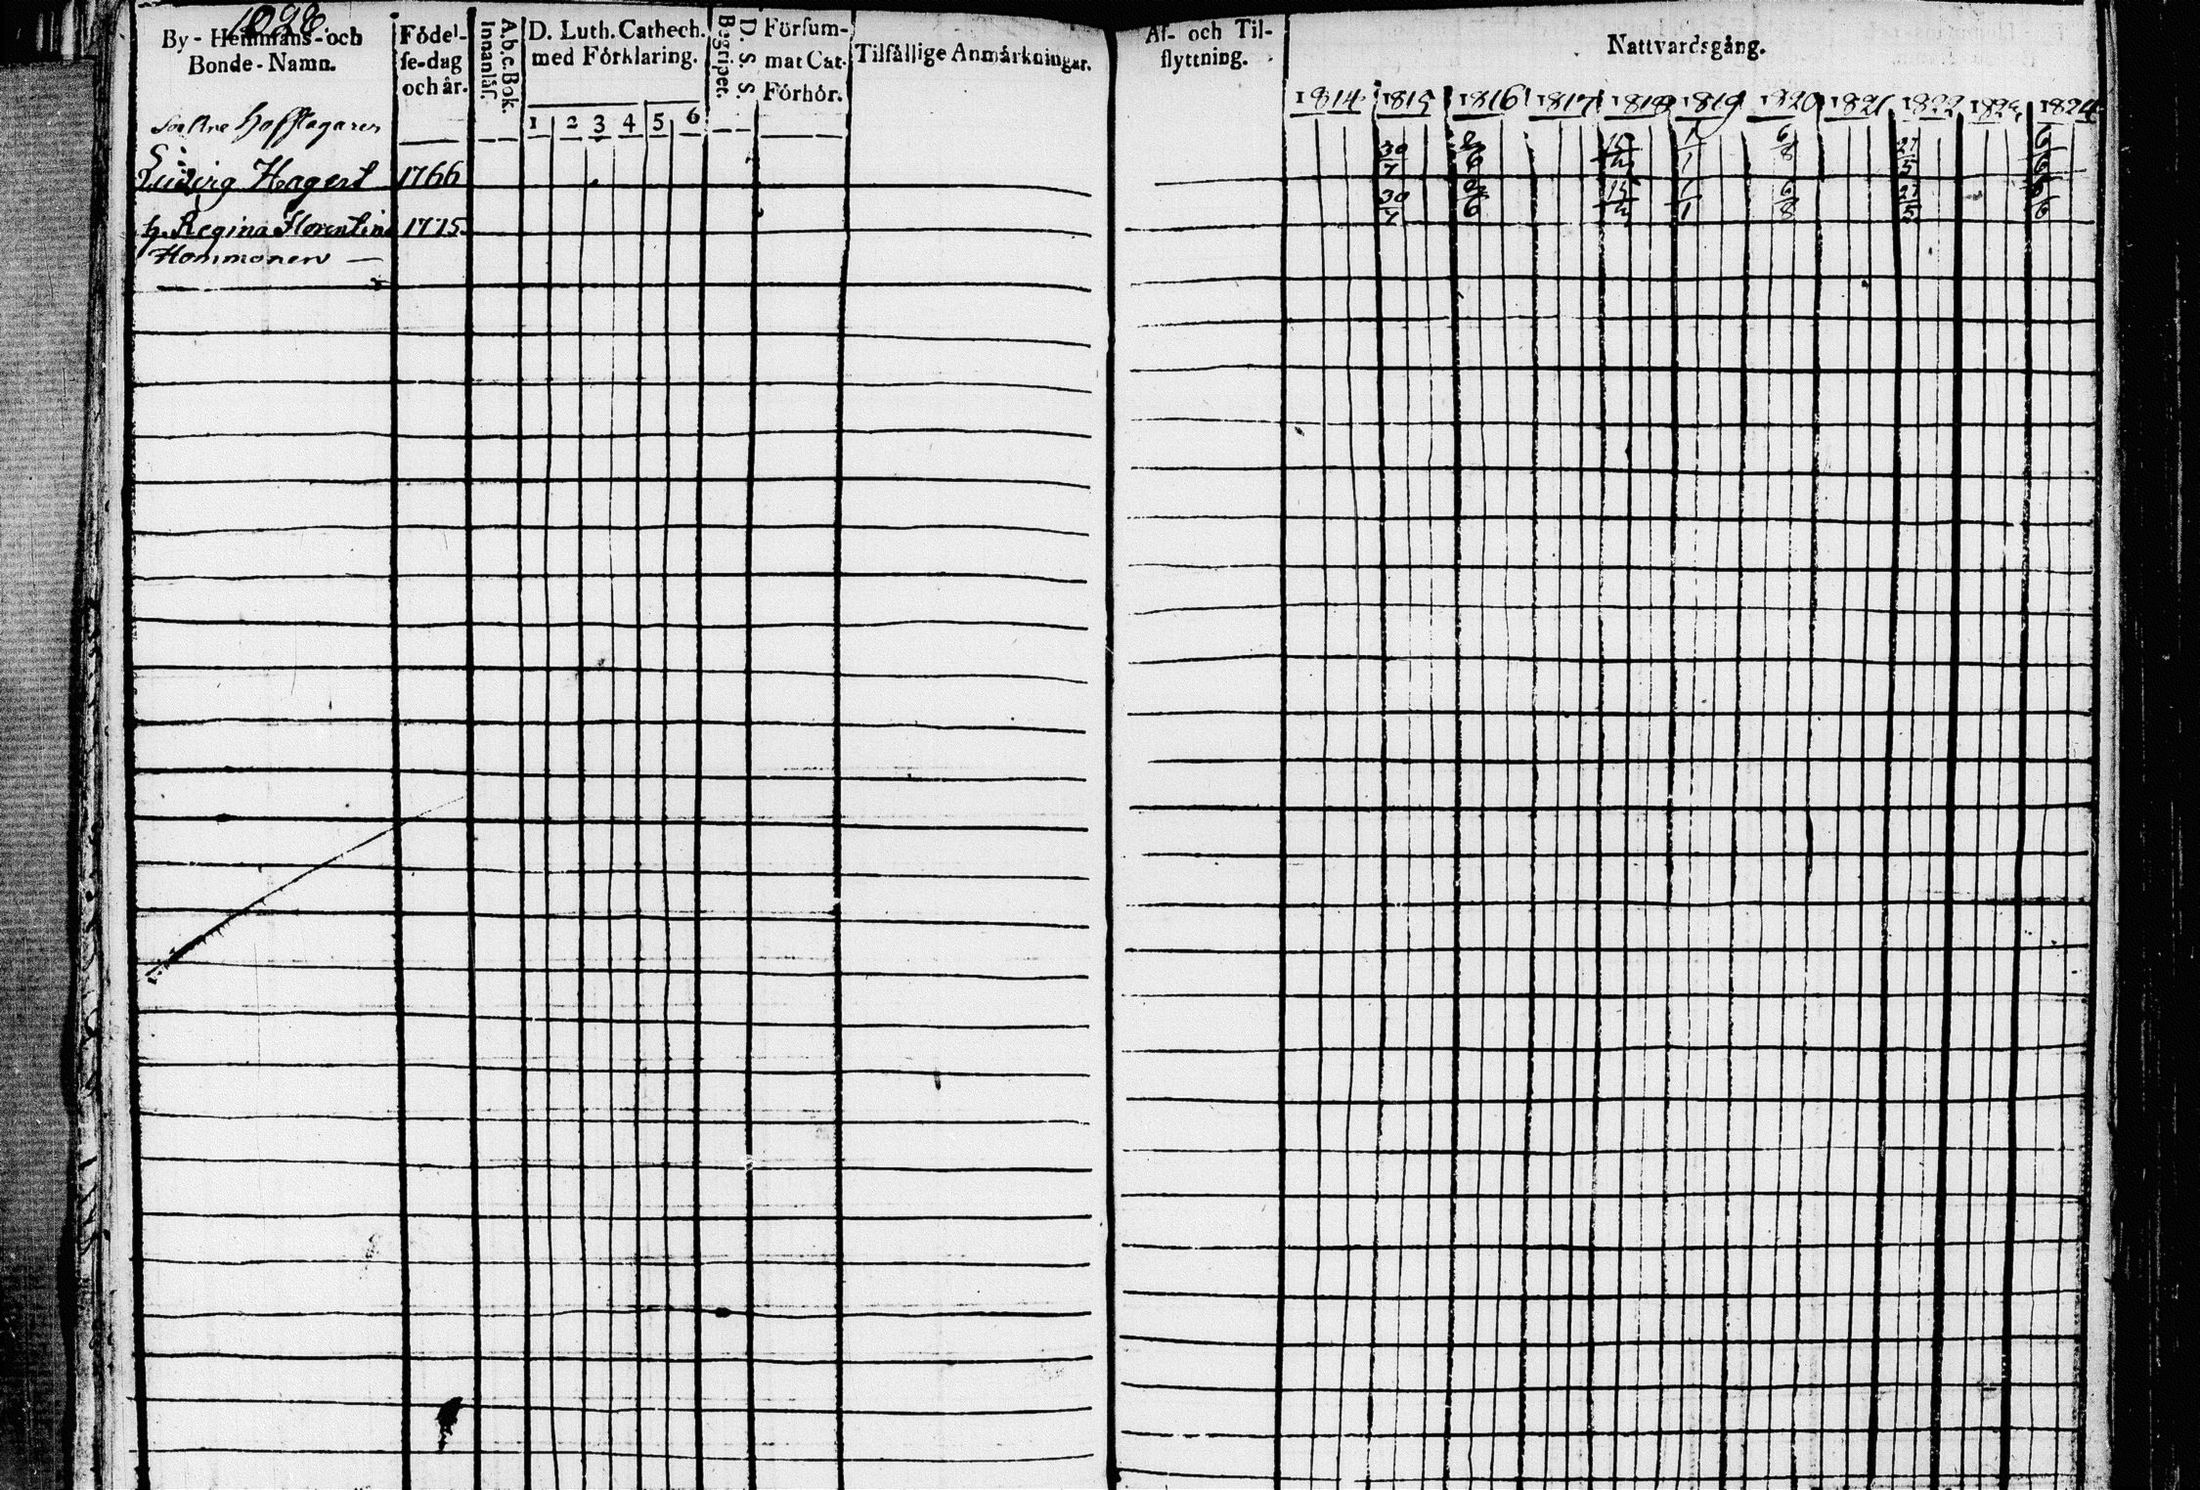 1098.
By - Hemmans - och
Bonde - Namn.
Födel-
se-dag
och år.
A.b.c.Bok.
Innanläs.
D. Luth. Cathech.
med Förklaring.
1 2 3 4 5 6
D. S. S.
Begripet.
Försum-
mat Cat.
Förhör.
Tilfällige Anmärkningar.
Af- och Til-
flyttning.
Nattvardsgång.
1814 1815 1816 1817 1818 1819 1820 1821 1822 1823 1824
Hofflagaren
Ludvig Hagert 1766
30/7 6 1/1 6/8 21/5 6/6
h. Regina Florentina 1775
30/7 6 1/1 6/8 21/5 6/6
Hommonen —